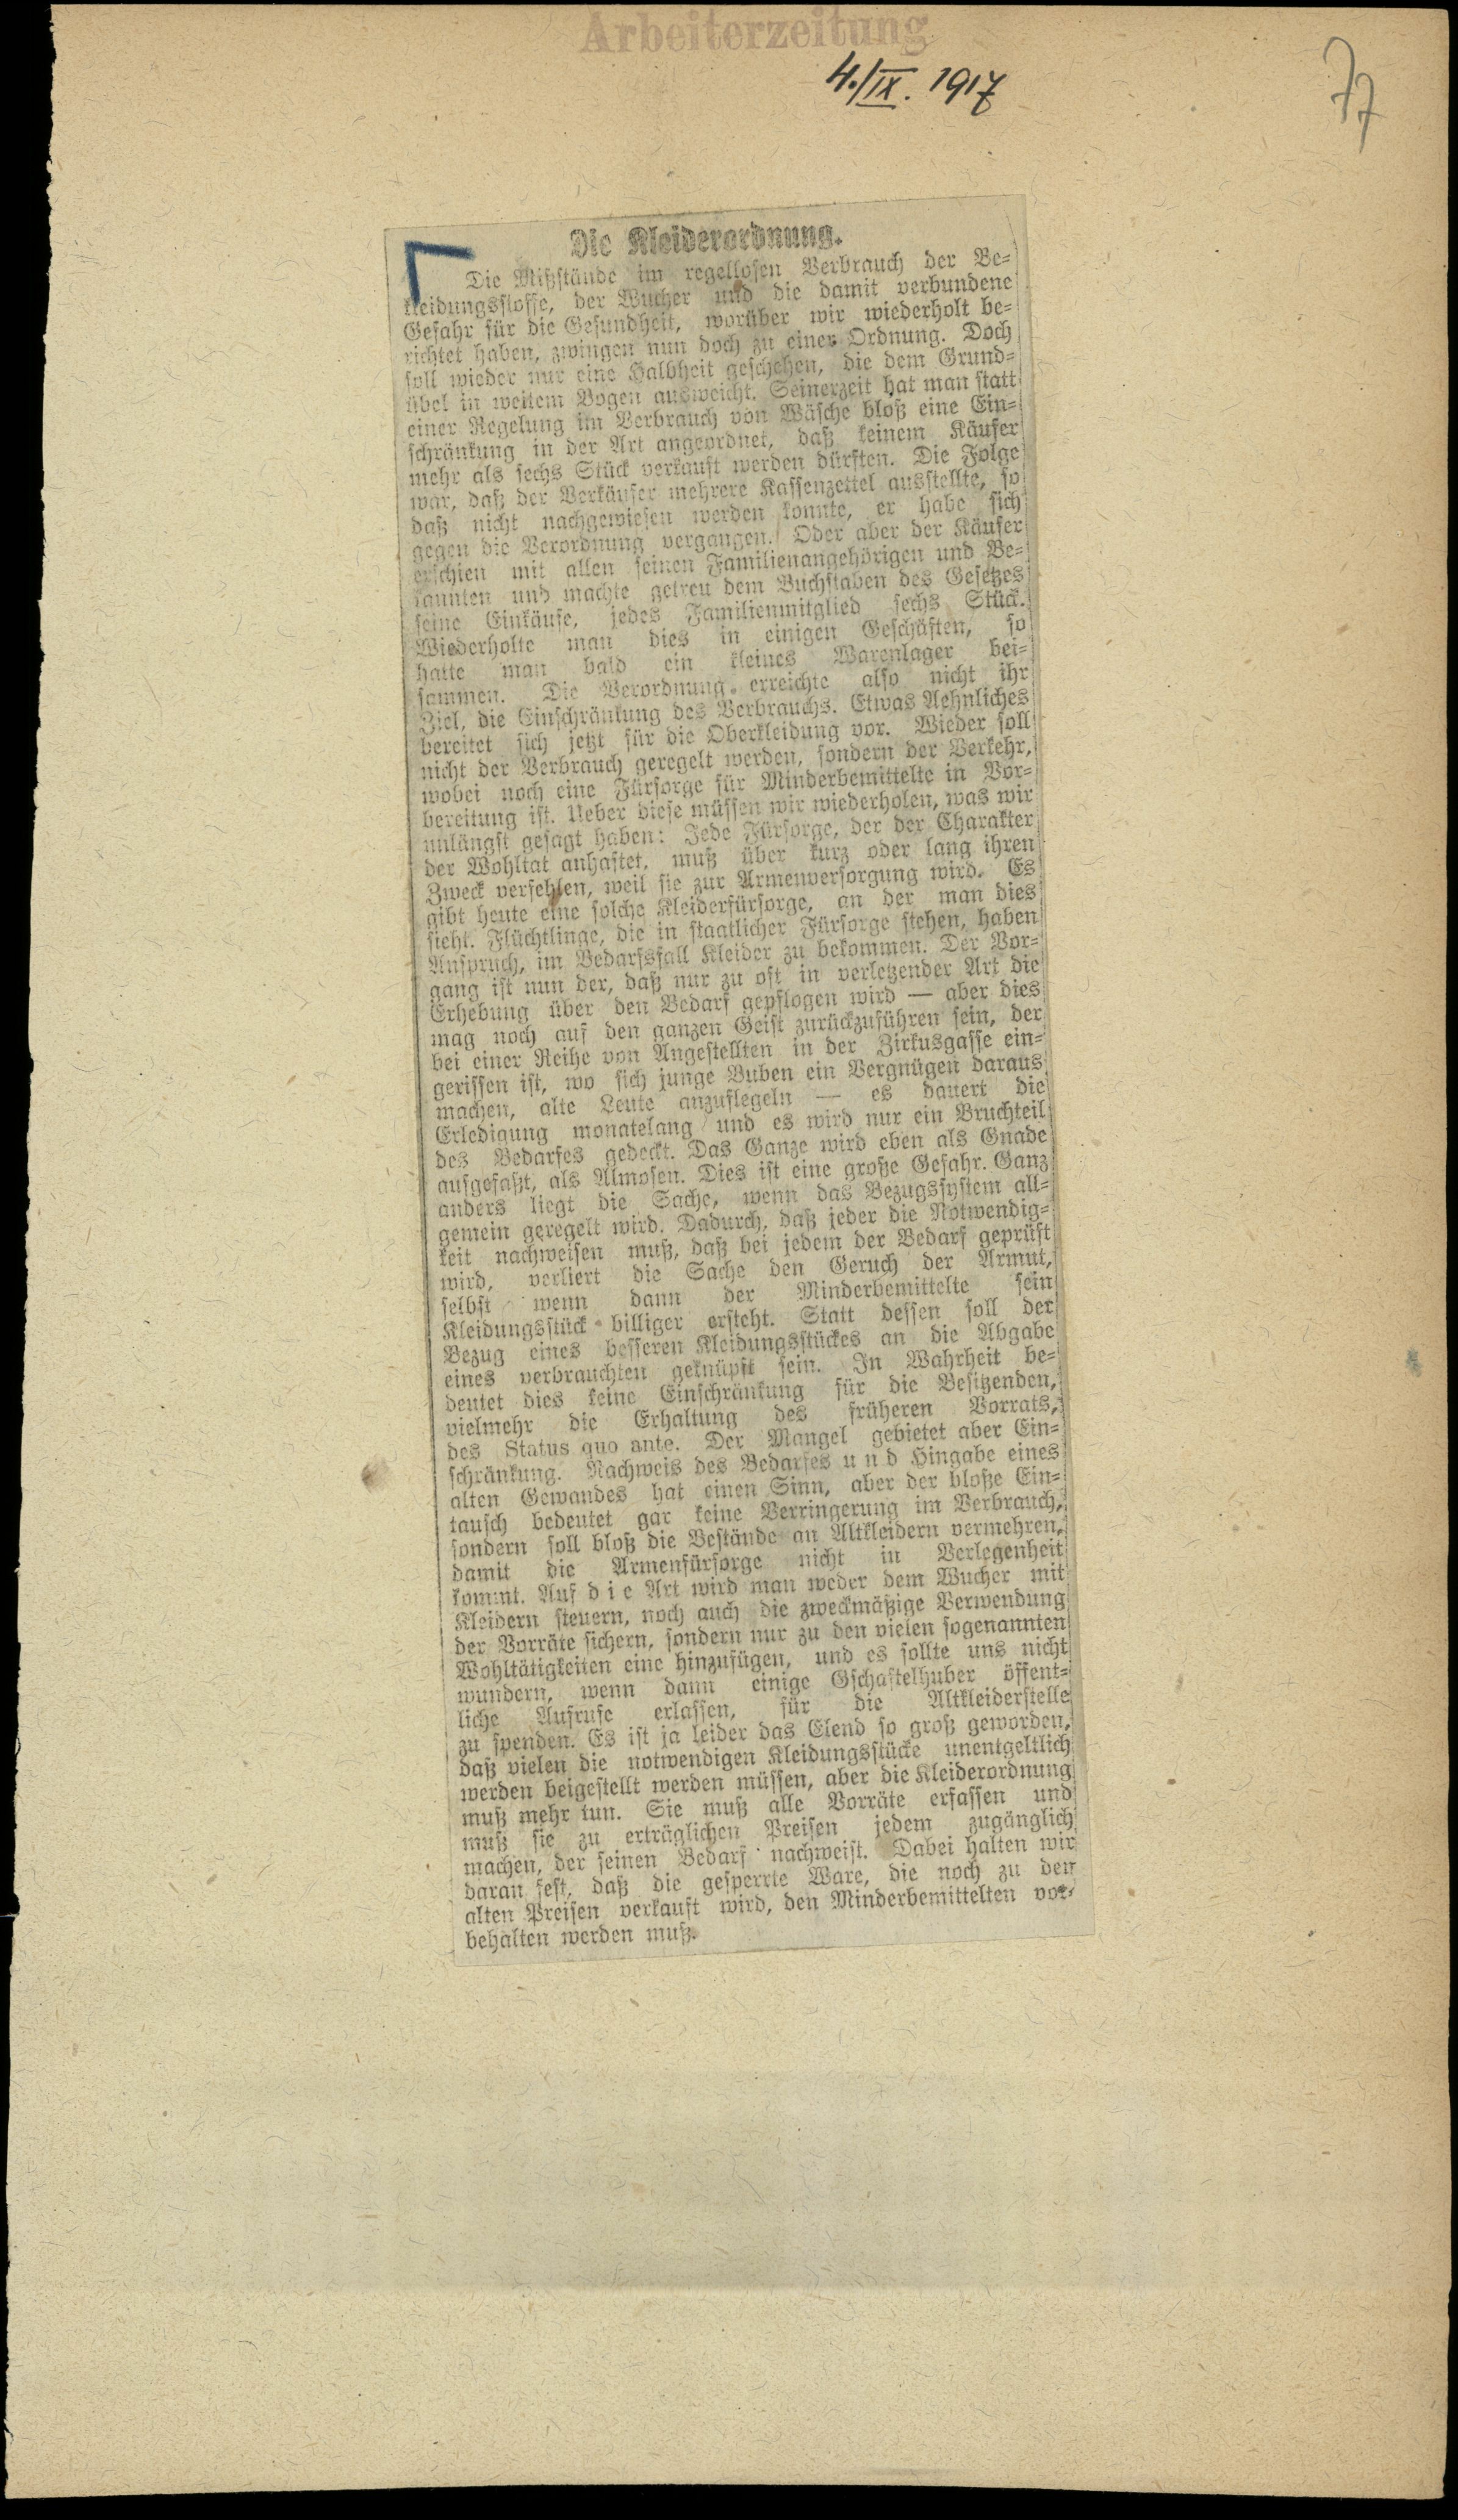 Arbeiterzeitung
4./IX. 1917
77
Die Kleiderordnung.
Die Mißstände im regellosen Verbrauch der Be-
kleidungsstoffe, der Wucher und die damit verbundene
Gefahr für die Gesundheit, worüber wir wiederholt be-
richtet haben, zwingen nun doch zu einer Ordnung. Doch
soll wieder nur eine Halbheit geschehen, die dem Grund-
übel in weitem Bogen ausweicht. Seinerzeit hat man statt
einer Regelung im Verbrauch von Wäsche bloß eine Ein-
schränkung in der Art angeordnet, daß keinem Käufer
mehr als sechs Stück verkauft werden dürften. Die Folge
war, daß der Verkäufer mehrere Kassenzettel ausstellte, so
daß nicht nachgewiesen werden konnte, er habe sich
gegen die Verordnung vergangen. Oder aber der Käufer
erschien mit allen seinen Familienangehörigen und Be-
kannten und machte getreu dem Buchstaben des Gesetzes
seine Einkäufe, jedes Familienmitglied sechs Stück.
Wiederholte man dies in einigen Geschäften, so
hatte man bald ein kleines Warenlager bei-
sammen. Die Verordnung erreichte also nicht ihr
Ziel, die Einschränkung des Verbrauchs. Etwas Aehnliches
bereitet sich jetzt für die Oberkleidung vor. Wieder soll
nicht der Verbrauch geregelt werden, sondern der Verkehr,
wobei noch eine Fürsorge für Minderbemittelte in Vor-
bereitung ist. Ueber diese müssen wir wiederholen, was wir
unlängst gesagt haben: Jede Fürsorge, der der Charakter
der Wohltat anhaftet, muß über kurz oder lang ihren
Zweck verfehlen, weil sie zur Armenversorgung wird. Es
gibt heute eine solche Kleiderfürsorge, an der man dies
sieht. Flüchtlinge, die in staatlicher Fürsorge stehen, haben
Anspruch, im Bedarfsfall Kleider zu bekommen. Der Vor-
gang ist nun der, daß nur zu oft in verletzender Art die
Erhebung über den Bedarf gepflogen wird — aber dies
mag noch auf den ganzen Geist zurückzuführen sein, der
bei einer Reihe von Angestellten in der Zirkusgasse ein-
gerissen ist, wo sich junge Buben ein Vergnügen daraus
machen, alte Leute anzuflegeln — es dauert die
Erledigung monatelang und es wird nur ein Bruchteil
des Bedarfes gedeckt. Das Ganze wird eben als Gnade
aufgefaßt, als Almosen. Dies ist eine große Gefahr. Ganz
anders liegt die Sache, wenn das Bezugssystem all-
gemein geregelt wird. Dadurch, daß jeder die Notwendig-
keit nachweisen muß, daß bei jedem der Bedarf geprüft
wird, verliert die Sache den Geruch der Armut,
selbst wenn dann der Minderbemittelte sein
Kleidungsstück billiger ersteht. Statt dessen soll der
Bezug eines besseren Kleidungsstückes an die Abgabe
eines verbrauchten geknüpft sein. In Wahrheit be-
deutet dies keine Einschränkung für die Besitzenden,
vielmehr die Erhaltung des früheren Vorrats,
des Status quo ante. Der Mangel gebietet aber Ein-
schränkung. Nachweis des Bedarfes und Hingabe eines
alten Gewandes hat einen Sinn, aber der bloße Ein-
tausch bedeutet gar keine Verringerung im Verbrauch,
sondern soll bloß die Bestände an Altkleidern vermehren,
damit die Armenfürsorge nicht in Verlegenheit
kommt. Auf die Art wird man weder dem Wucher mit
Kleidern steuern, noch auch die zweckmäßige Verwendung
der Vorräte sichern, sondern nur zu den vielen sogenannten
Wohltätigkeiten eine hinzufügen, und es sollte uns nicht
wundern, wenn dann einige Gschaftelhuber öffent-
liche Aufrufe erlassen, für die Altkleiderstelle
zu spenden. Es ist ja leider das Elend so groß geworden,
daß vielen die notwendigen Kleidungsstücke unentgeltlich
werden beigestellt werden müssen, aber die Kleiderordnung
muß mehr tun. Sie muß alle Vorräte erfassen und
muß sie zu erträglichen Preisen jedem zugänglich
machen, der seinen Bedarf nachweist. Dabei halten wir
daran fest, daß die gesperrte Ware, die noch zu den
alten Preisen verkauft wird, den Minderbemittelten vor-
behalten werden muß.